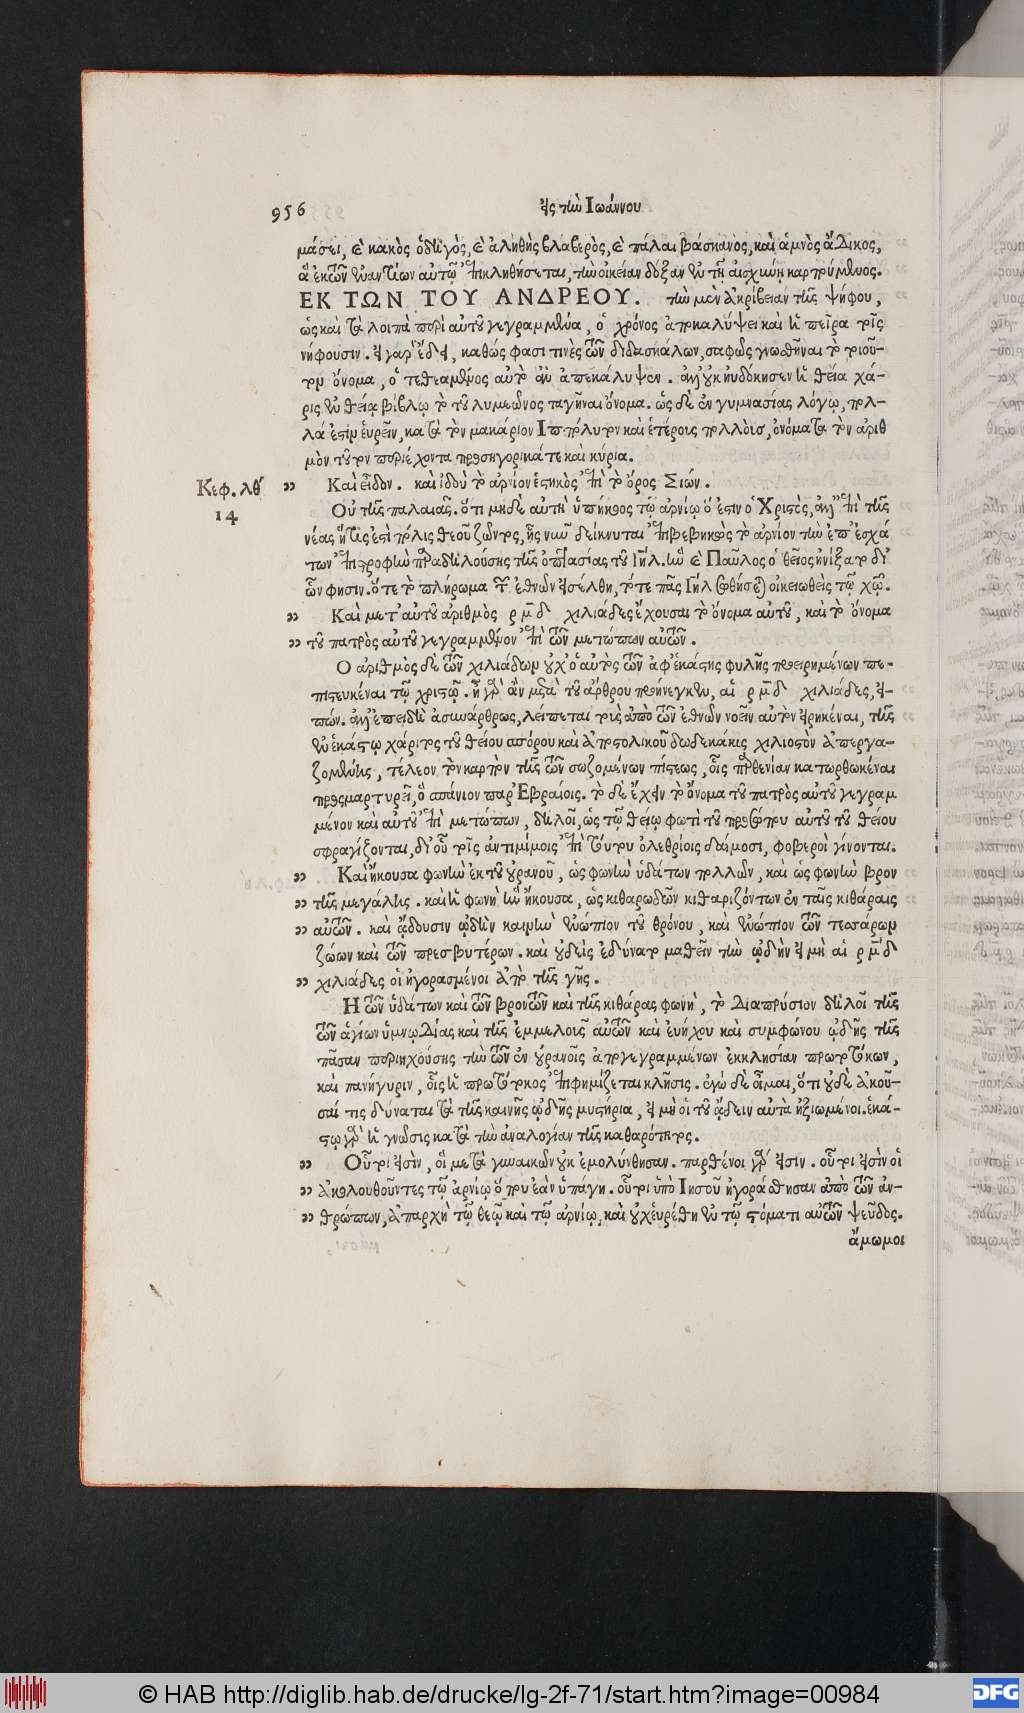 956 εἰς τὴν Ἰωάννου
μάσει, καὶ κακὸς ὁδηγὸς, καὶ ἀληθὴς βλαβερὸς, καὶ πάλαι βάσκανος, καὶ ἀμνὸς ἄδικος,
ἃ ἐκ τῶν ἐναντίων αὐτῷ ἐπικληθήσεται, τὴν οἰκείαν δόξαν ἐν τῇ αἰσχύνῃ καρπούμενος.
ΕΚ ΤΩΝ ΤΟΥ ΑΝΔΡΕΟΥ. τὴν μὲν ἀκρίβειαν τῆς ψήφου,
ὡς καὶ τὰ λοιπὰ περὶ αὐτοῦ γεγραμμένα, ὁ χρόνος ἀποκαλύψει καὶ ἡ πεῖρα τοῖς
νήφουσιν. εἰ γὰρ ἔδει, καθώς φασί τινὲς τῶν διδασκάλων, σαφῶς γνωσθῆναι τὸ τοιοῦ-
τον ὄνομα, ὁ τεθεαμένος αὐτὸ ἂν ἀπεκάλυψεν. ἀλλ' οὐκ ηὐδόκησεν ἡ θεία χά-
ρις ἐν θείᾳ βίβλῳ τὸ τοῦ λυμεῶνος ταγῆναι ὄνομα. ὡς δὲ ἐν γυμνασίας λόγῳ, πολ-
λά ἐστιν εὑρεῖν, κατὰ τὸν μακάριον Ἱππόλυτον καὶ ἑτέροις πολλοῖς, ὀνόματα τὸν ἀριθ
μὸν τοῦτον περιέχοντα προσηγορικά τε καὶ κύρια.
Κεφ. λθ´ „ Καὶ εἶδον. καὶ ἰδοὺ τὸ ἀρνίον ἑστηκὸς ἐπὶ τὸ ὄρος Σιών.
14 Οὐ τῆς παλαιᾶς. ὅτι μηδὲ αὐτὴ ὑπήκοος τῷ ἀρνίῳ ὅ ἐστιν ὁ Χριστὸς, ἀλλ' ἐπὶ τῆς
νέας, ἥτις ἐστὶ πόλις θεοῦ ζῶντος, ἧς νῦν δείκνυται ἐπιβεβηκὼς τὸ ἀρνίον τὴν ἐπ' ἐσχά
των ἐπιστροφὴν παραδηλούσης τῆς ὀπτασίας τοῦ Ἰηλ. ἣν καὶ Παῦλος ὁ θεῖος ᾐνίξατο δι'
ὧν φησιν. ὅτε τὸ πλήρωμα τῶν ἐθνῶν εἰσέλθῃ, τότε πᾶς Ἰηλ σωθήσεται οἰκειωθεὶς τῷ χῷ.
„ Καὶ μετ' αὐτοῦ ἀριθμὸς ρμδ χιλιάδες ἔχουσαι τὸ ὄνομα αὐτοῦ, καὶ τὸ ὄνομα
„ τοῦ πατρὸς αὐτοῦ γεγραμμένον ἐπὶ τῶν μετώπων αὐτῶν.
Ὁ ἀριθμὸς δὲ τῶν χιλιάδων οὐχ' ὁ αὐτὸς τῶν ἀφ' ἑκάστης φυλῆς προειρημένων πε-
πιστευκέναι τῷ χριστῷ. ἦ γὰρ ἂν μετὰ τοῦ ἄρθρου προήνεγκεν, αἱ ρμδ χιλιάδες, εἰ-
πών. ἀλλ' ἐπειδὴ ἀσυνάρθρως, λείπεται τοὺς ἀπὸ τῶν ἐθνῶν νοεῖν αὐτὸν εἰρηκέναι, τῆς
ἐν ἑκάστῳ χάριτος τοῦ θείου σπόρου καὶ ἀποστολικοῦ δωδεκάκις χιλιοστὸν ἀπεργα-
ζομένης, τέλεον τὸν καρπὸν τῆς τῶν σωζομένων πίστεως, οἷς παρθενίαν κατωρθωκέναι
προσμαρτυρεῖ, ὃ σπάνιον παρ' Ἑβραίοις. τὸ δὲ ἔχειν τὸ ὄνομα τοῦ πατρὸς αὐτοῦ γεγραμ
μένον καὶ αὐτοῦ ἐπὶ μετώπων, δηλοῖ, ὡς τῷ θείῳ φωτὶ τοῦ προσώπου αὐτοῦ τοῦ θείου
σφραγίζονται, δι' οὗ τοῖς ἀντιμίμοις ἐπὶ τούτου ὀλεθρίοις δαίμοσι, φοβεροὶ γίνονται.
„ Καὶ ἤκουσα φωνὴν ἐκ τοῦ οὐρανοῦ, ὡς φωνὴν ὑδάτων πολλῶν, καὶ ὡς φωνὴν βρον
„ τῆς μεγάλης. καὶ ἡ φωνὴ ἣν ἤκουσα, ὡς κιθαρωδῶν κιθαριζόντων ἐν ταῖς κιθάραις
„ αὐτῶν. καὶ ᾄδουσιν ᾠδὴν καινὴν ἐνώπιον τοῦ θρόνου, καὶ ἐνώπιον τῶν τεσσάρων
ζώων καὶ τῶν πρεσβυτέρων. καὶ οὐδεὶς ἐδύνατο μαθεῖν τὴν ᾠδὴν εἰ μὴ αἱ ρμδ
„ χιλιάδες οἱ ἠγορασμένοι ἀπὸ τῆς γῆς.
Ἡ τῶν ὑδάτων καὶ τῶν βροντῶν καὶ τῆς κιθάρας φωνὴ, τὸ διαπρύσιον δηλοῖ τῆς
τῶν ἁγίων ὑμνῳδίας καὶ τῆς ἐμμελοῦς αὐτῶν καὶ εὐήχου καὶ συμφώνου ᾠδῆς τῆς
πᾶσαν περιηχούσης τὴν τῶν ἐν οὐρανοῖς ἀπογεγραμμένων ἐκκλησίαν πρωτοτόκων,
καὶ πανήγυριν, οἷς ἡ πρωτότοκος ἐπιφημίζεται κλῆσις. ἐγὼ δὲ οἶμαι, ὅτι οὐδὲ ἀκοῦ-
σαί τις δύναται τὰ τῆς καινῆς ᾠδῆς μυστήρια, εἰ μὴ οἱ τοῦ ᾄδειν αὐτὰ ἠξιωμένοι. ἑκά-
στῳ γὰρ ἡ γνῶσις κατὰ τὴν ἀναλογίαν τῆς καθαρότητος.
„ Οὗτοί εἰσὶν, οἳ μετὰ γυναικῶν οὐκ ἐμολύνθησαν. παρθένοι γάρ εἰσιν. οὗτοι εἰσὶν οἱ
„ ἀκολουθοῦντες τῷ ἀρνίῳ ὅπου ἐὰν ὑπάγῃ. οὗτοι ὑπὸ Ἰησοῦ ἠγοράσθησαν ἀπὸ τῶν ἀν-
„ θρώπων, ἀπαρχὴ τῷ θεῷ καὶ τῷ ἀρνίῳ, καὶ οὐχ εὑρέθη ἐν τῷ στόματι αὐτῶν ψεῦδος.
ἄμωμοι
© HAB http://diglib.hab.de/drucke/lg-2f-71/start.htm?image=00984
DFG